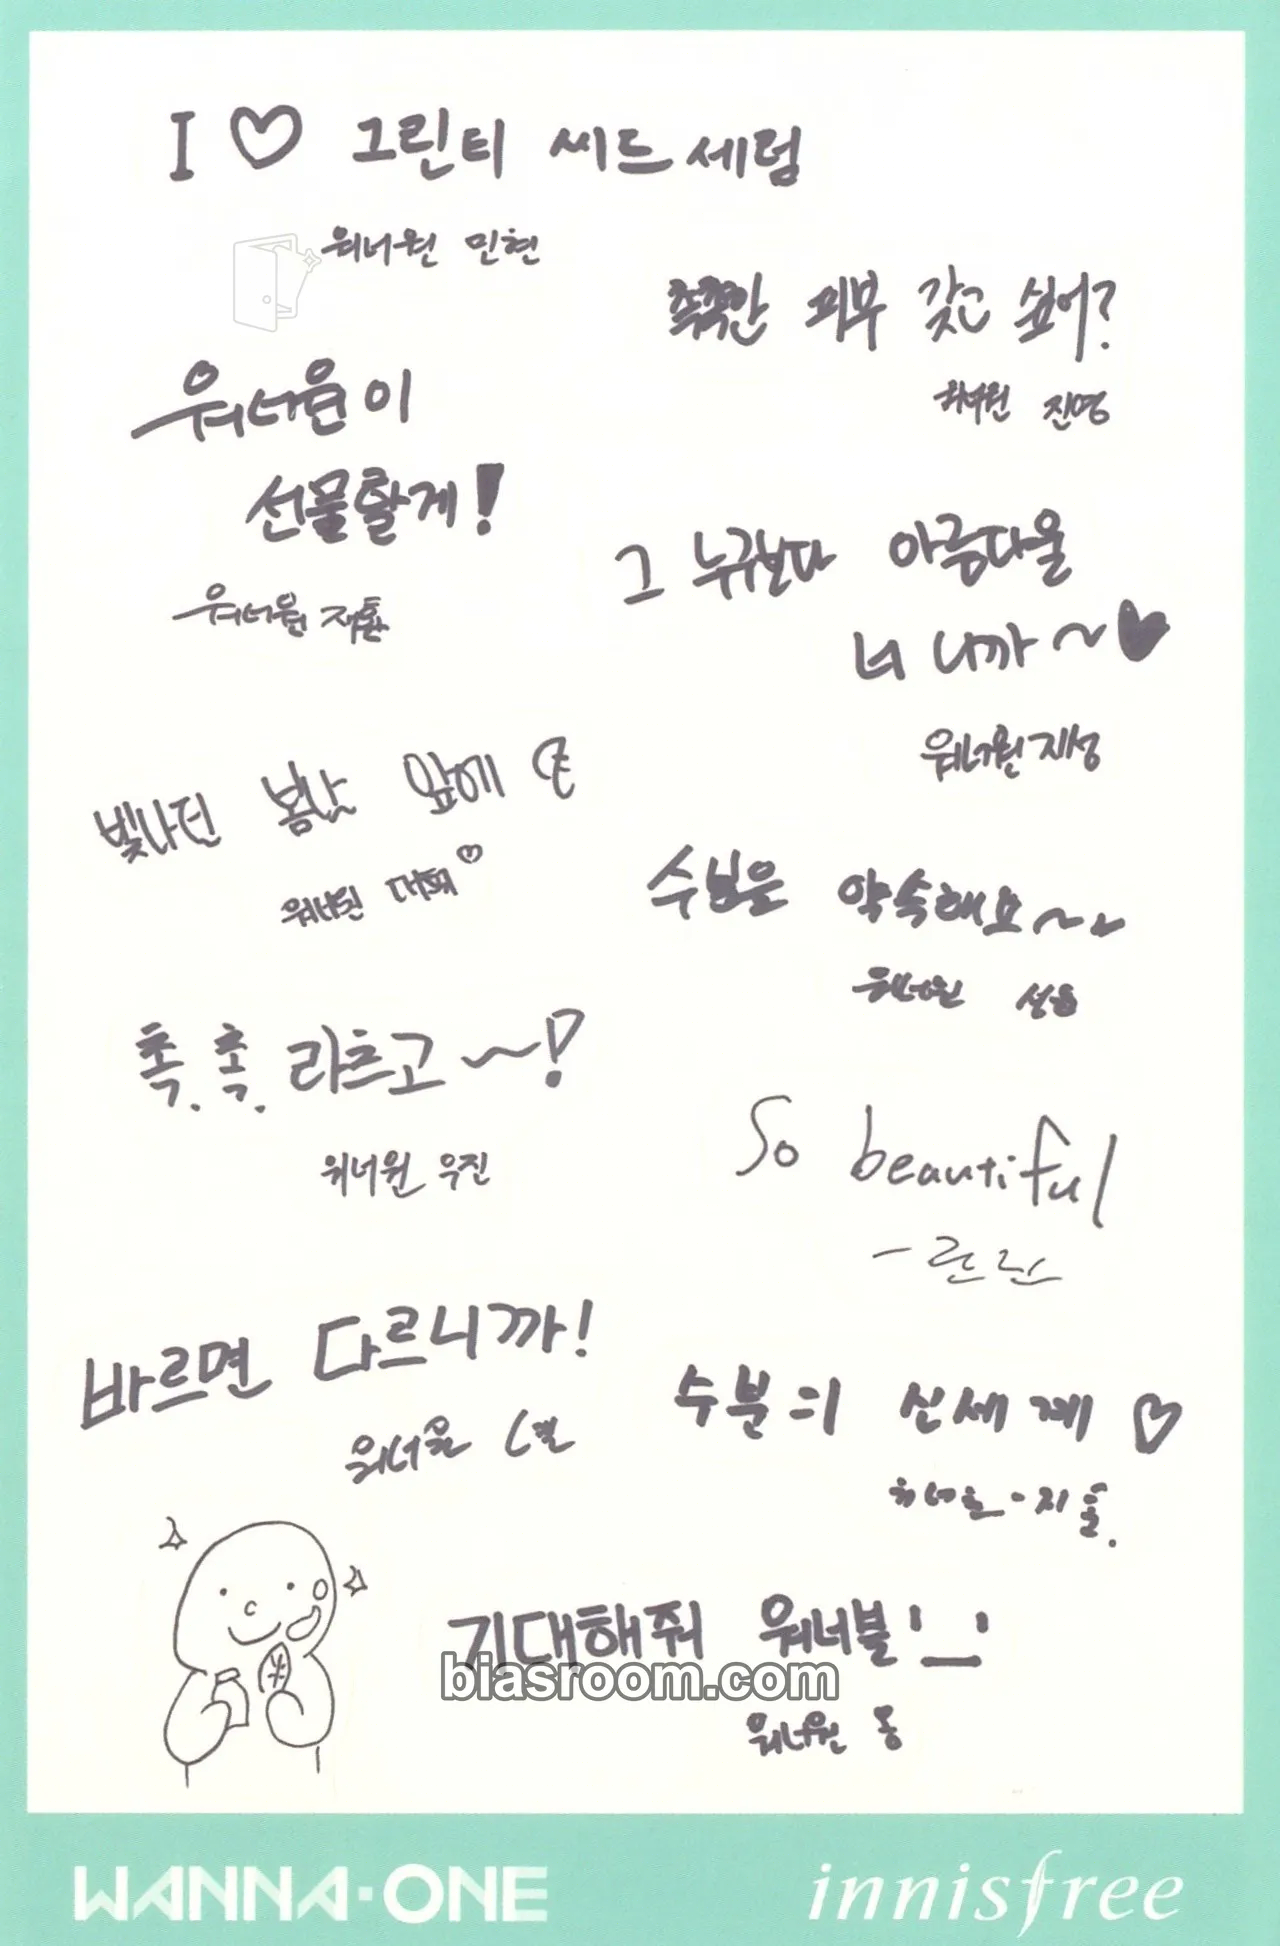 I ♡ 그린티 씨드 세럼
워너원 민현
촉촉한 피부 갖고 싶어?
워너원 진영
워너원이
선물할게!
워너원 재환
그 누구보다 아름다울
너니까~♥
워너원 지성
빛나던 봄날 앞에
워너원 대휘♡
수분은 약속해요~
워너원 성운
촉.촉.라츠고~!
워너원 우진
So beautiful
- 관린
바르면 다르니까!
워너원
수분의 신세계 ♡
워너원 - 지훈.
기대해줘 워너블
biasroom.com
워너원
WANNA·ONE
innisfree